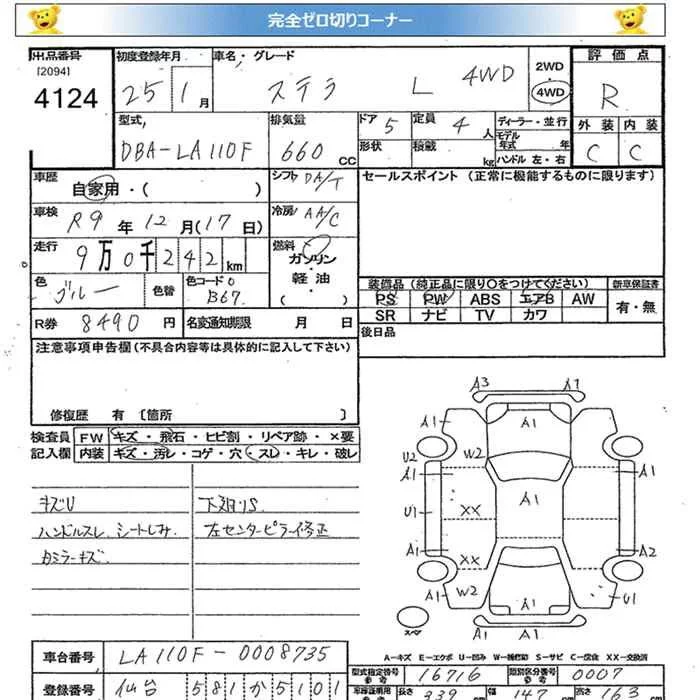 完全ゼロ切りコーナー
出品番号 初度登録年月 車名・グレード 2WD 評価点
[2094] 4124 25 1月 ステラ L 4WD 4WD R
外装 内装
C C
型式 排気量 ドア 5 定員 4人 ディーラー・並行
DBA-LA110F 660cc 形状 積載 kg モデル年式 年
ハンドル 左・右
車歴 自家用・( ) シフト DA/T セールスポイント (正常に機能するものに限ります)
車検 R9年12月(17日) 冷房 AA/C
走行 9万0千242km 燃料 ガソリン・軽油・( )
色 ブルー 色替 色コードNo B67
装備品 (純正品に限り○をつけてください) 新車保証書
PS PW ABS エアB AW 有・無
SR ナビ TV カワ
R券 8490円 名変通知期限 月 日 後日品
注意事項申告欄 (不具合内容等は具体的に記入して下さい)
修復歴 有 [箇所 ]
検査員記入欄 FW キズ・飛石・ヒビ割・リペア跡・×要
内装 キズ・汚レ・コゲ・穴・スレ・キレ・破レ
キズU 下廻りS
ハンドルスレ、シートしみ 左センターピラー修正
カミラーキズ
A3 A1
A1 A1 A1
U2 W2
A1 A1 A1
U1 XX
A1 XX A2
A1 W2 A1 A1 U1
スペア
A-キズ E-エクボ U-凹み W-補修跡 S-サビ C-腐食 XX-交換済
車台番号 LA110F-0008735
型式指定番号 16716 類別区分番号 0007
登録番号 仙台 581 か 5101
長さ 339 幅 147 高さ 163